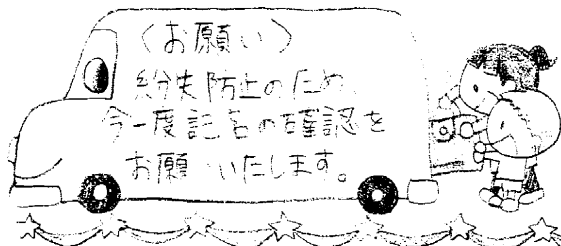 〈お願い〉
紛失防止のため、
今一度記名の確認を
お願いいたします。